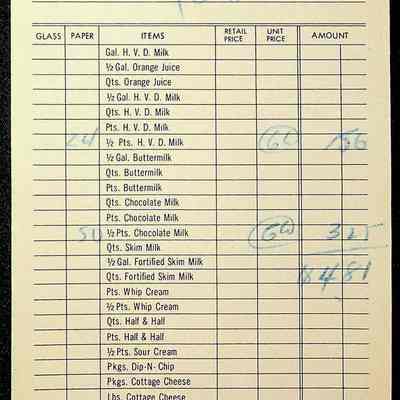 GLASS PAPER ITEMS RETAIL PRICE UNIT PRICE AMOUNT
Gal. H. V. D. Milk
½ Gal. Orange Juice
Qts. Orange Juice
½ Gal. H. V. D. Milk
Qts. H. V. D. Milk
Pts. H. V. D. Milk
24 ½ Pts. H. V. D. Milk 6½ 156
½ Gal. Buttermilk
Qts. Buttermilk
Pts. Buttermilk
Qts. Chocolate Milk
Pts. Chocolate Milk
50 ½ Pts. Chocolate Milk 6½ 325
Qts. Skim Milk
½ Gal. Fortified Skim Milk 481
Qts. Fortified Skim Milk
Pts. Whip Cream
½ Pts. Whip Cream
Qts. Half & Half
Pts. Half & Half
½ Pts. Sour Cream
Pkgs. Dip-N-Chip
Pkgs. Cottage Cheese
Lbs. Cottage Cheese